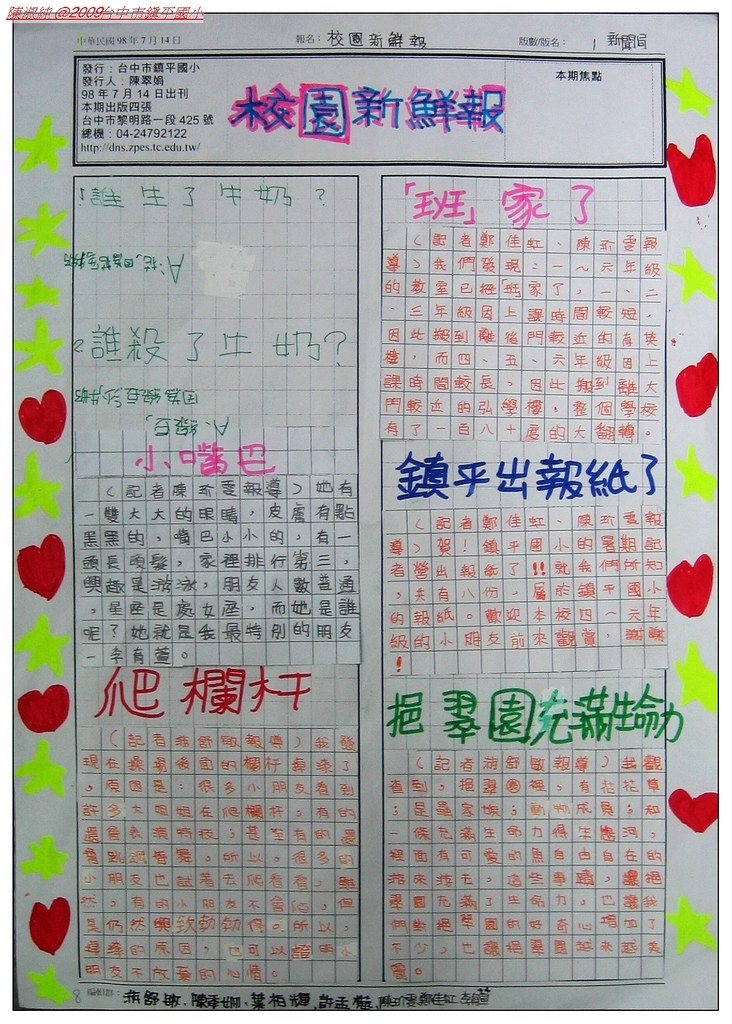 陳淑純 @2009台中市鎮平國小
中華民國 98 年 7 月 14 日
報名： 校園新鮮報
版數/版名： 1 新聞局
發行：台中市鎮平國小
發行人：陳翠娟
98 年 7 月 14 日出刊
本期出版四張
台中市黎明路一段 425 號
總機：04-24792122
http://dns.zpes.tc.edu.tw/
校園新鮮報
本期焦點
「班」家了
（記者鄭佳虹、陳玠雯報
導）我們發現：一～六年級
的教室已經「班」家了，一、二
、三年級因上課時間較短，
因此搬到離後門較近的育英
樓，而四、五、六年級因上
課時間較長，因此搬到離大
門較近的弘學樓，整個學校
有了一百八十度的大翻轉。
鎮平出報紙了
（記者鄭佳虹、陳玠雯報
導）賀！鎮平國小的暑期記
者營出報紙了！！就我們所知
，共有八份，屬於鎮平國小
的報紙。歡迎本校四～六年
級的小朋友前來觀賞，謝謝
！
挹翠園充滿生命力
（記者游舒敏報導）我觀
查到，挹翠園裡，有花花草
草；是蟲家族；動物成員；和
一條充滿生命力得生態河，
裡面有可愛的魚自由自在的
游來游去，這些事蹟，讓挹
翠園充滿了生命力，也讓我
們對挹翠園的好奇心增加了
不少，也讓挹翠園越來越美
麗。
誰生了牛奶？
誰殺了牛奶？
小嘴巴
（記者陳玠雯報導）她有
一雙大大的眼睛，皮膚有點
黑黑的，嘴巴小小的，有一
頭長頭髮，家裡排行第三，
興趣是游泳，朋友人數普通
，星座是處女座，而她是誰
呢？她就是我最特別的朋友
－李有萱。
爬欄杆
（記者游舒敏報導）我發
現在操場後面的欄杆掉漆了
，原因是：很多小朋友看到
許多大姐姐在爬欄杆，有的
還會表演特技；甚至有的還
會跳，所以，很多的
小朋友也試著去爬看看，雖
然，有的小朋友不會爬，但
是仍然興致勃勃得，所以，
掉漆的原因，也可以證明小
朋友不放棄的心情。
8 編輯群： 游舒敏、陳季姍、葉柏輝、許孟、陳玠雯鄭佳虹李有萱